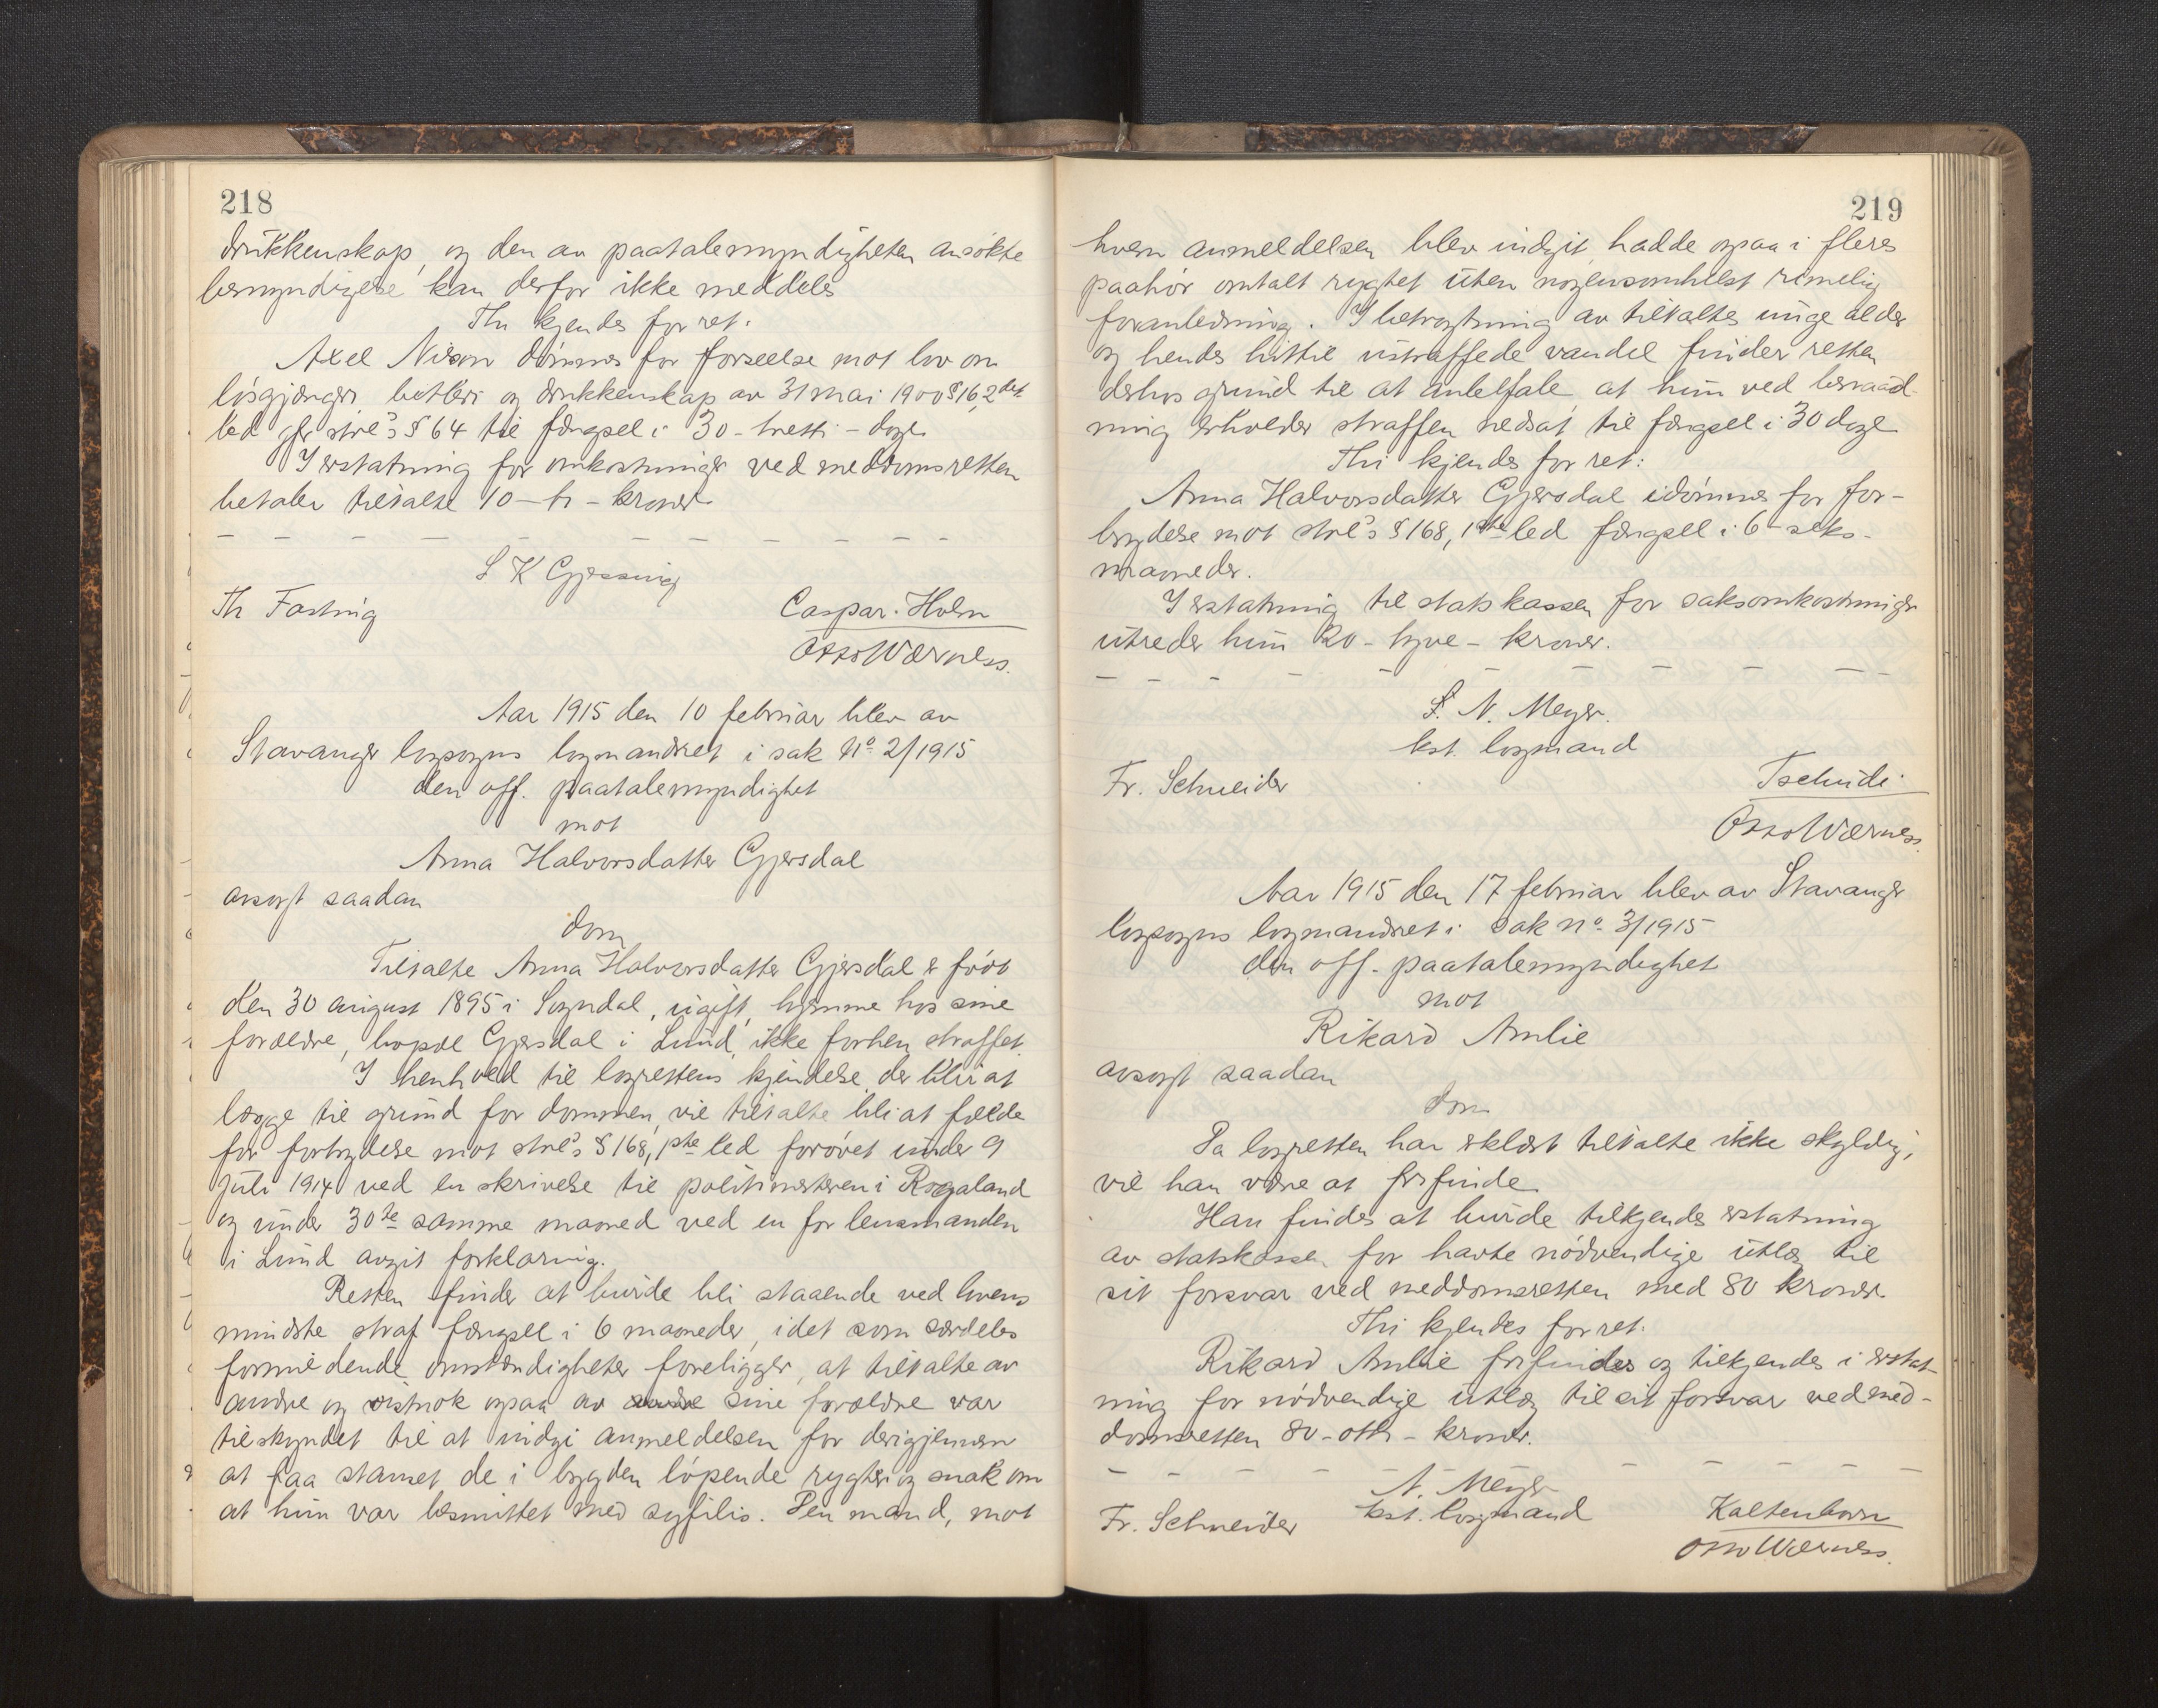 218
drukkenskap, og den av paatalemyndigheten ansökte
bemyndigelse kan derfor ikke meddeles
Thi kjendes for ret:
Axel Nilson dömmes for forseelse mot lov om
lösgjængeri, betleri og drukkenskap av 31 mai 1900 § 16, 2det
led jfr strl's § 64 til fængsel i 30 - tretti - dage.
I erstatning for omkostninger ved meddomsretten
betaler tiltalte 10 - ti - kroner.
L K Gjessing
Th Fasting
Caspar. Holm
Otto Værness.
Aar 1915 den 10 februar blev av
Stavanger lagsogns lagmandsret i sak No 2/1915
den off. paatalemyndighet
mot
Anna Halvorsdatter Gjersdal
avsagt saadan
dom
Tiltalte Anna Halvorsdatter Gjersdal er födt
den 30 august 1895 i Sogndal, ugift, hjemme hos sine
forældre, bopæl Gjersdal i Lund, ikke forhen straffet.
I henhold til lagrettens kjendelse, der blir at
lægge til grund for dommen, vil tiltalte bli at fælde
for forbrydelse mot strl's § 168, 1ste led forövet under 9
juli 1914 ved en skrivelse til politimesteren i Rogaland
og under 30te samme maaned ved en for lensmanden
i Lund avgit forklaring.
Retten finder at burde bli staaende ved lovens
mindste straf fængsel i 6 maaneder, idet som særdeles
formildende omstændigheter foreligger, at tiltalte av
andre og vistnok ogsaa av sine forældre var
tilskyndet til at indgi anmeldelsen for derigjennem
at faa stanset de i bygden löpende rygter og snak om
at hun var besmittet med syfilis. Den mand, mot
219
hvem anmeldelsen blev indgit, hadde ogsaa i fleres
paahör omtalt rygtet uten nogensomhelst rimelig
foranledning. I betragtning av tiltaltes unge alder
og hendes hittil ustraffede vandel finder retten
derhos grund til at anbefale, at hun ved benaad-
ning erholder straffen nedsat til fængsel i 30 dage
Thi kjendes for ret:
Anna Halvorsdatter Gjersdal idömmes for for-
brydelse mot strl's § 168, 1ste led fængsel i 6 - seks -
maaneder.
I erstatning til statskassen for saksomkostninger
utreder hun 20 - tyve - kroner.
L. N. Meyer.
kst. lagmand
Fr. Schneider
Tschudi.
Otto Værness.
Aar 1915 den 17 februar blev av Stavanger
lagsogns lagmandsret i sak no 3/1915
den off. paatalemyndighet
mot
Rikard Amlie
avsagt saadan
dom
Da lagretten har erklært tiltalte ikke skyldig,
vil han være at frifinde.
Han findes at burde tilkjendes erstatning
av statskassen for havte nödvendige utlæg til
sit forsvar ved meddomsretten med 80 kroner.
Thi kjendes for ret:
Rikard Amlie frifindes og tilkjendes i erstat-
ning for nödvendige utlæg til sit forsvar ved med-
domsretten 80 - otti - kroner.
N. Meyer
kst. lagmand
Fr. Schneider
Kaltenborn
Otto Værness.